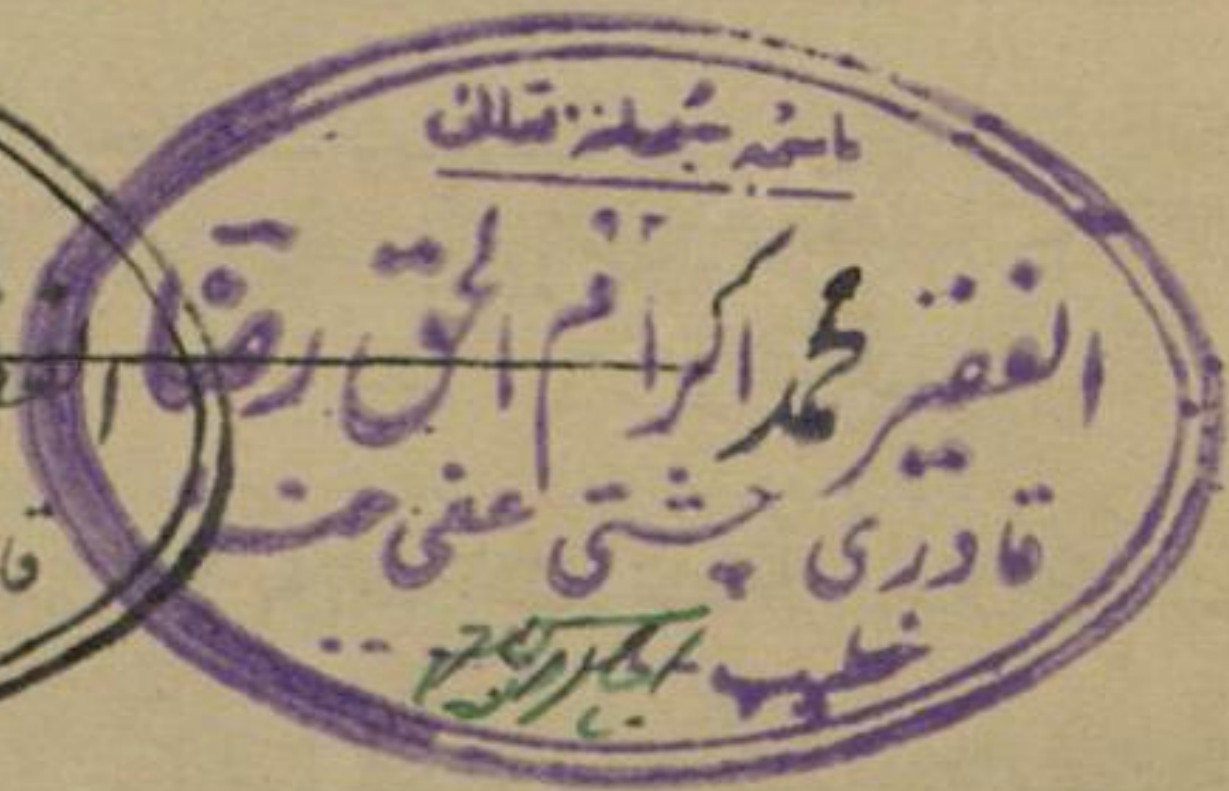 باسمہ سبحانہ تعالیٰ
الفقیر محمد اکرام الحق رضا
قادری چشتی عفی عنہ
خطیب